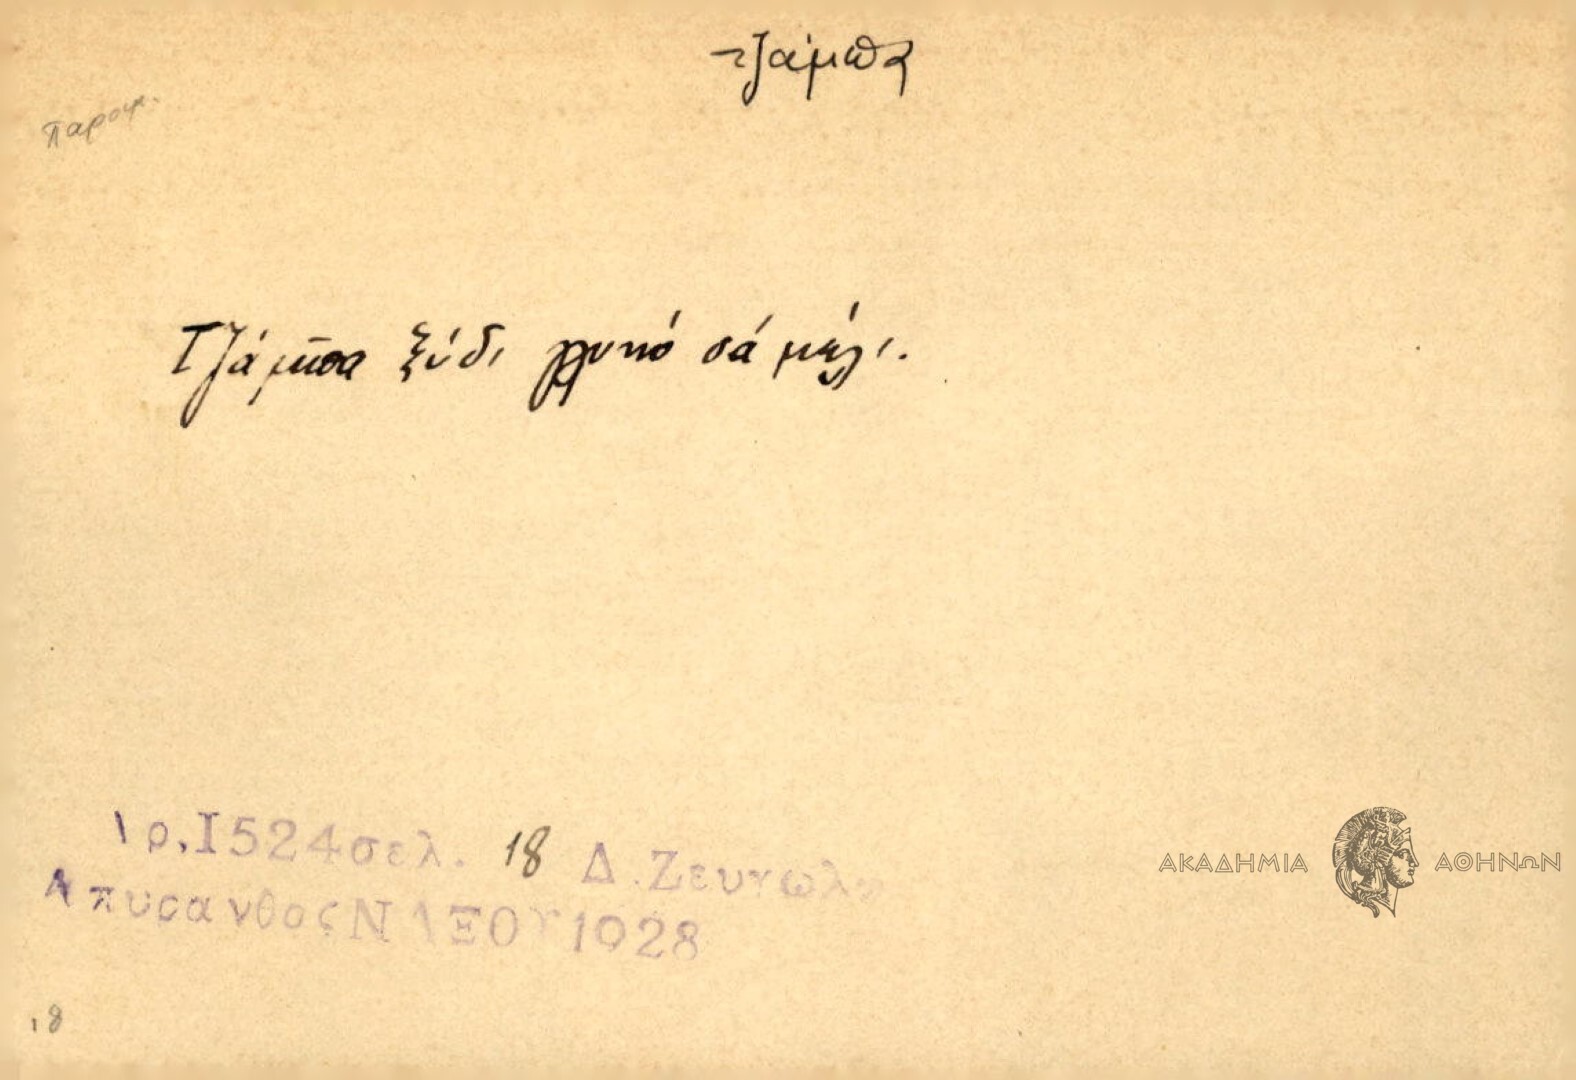 τζάμπα
παροιμ.
Τζάμπα ξύδι γλυκό σά μέλι.
Αρ. 1524 σελ. 18 Δ. Ζευγωλη
Απυρανθος ΝΑΞΟΥ 1928
ΑΚΑΔΗΜΙΑ ΑΘΗΝΩΝ
18